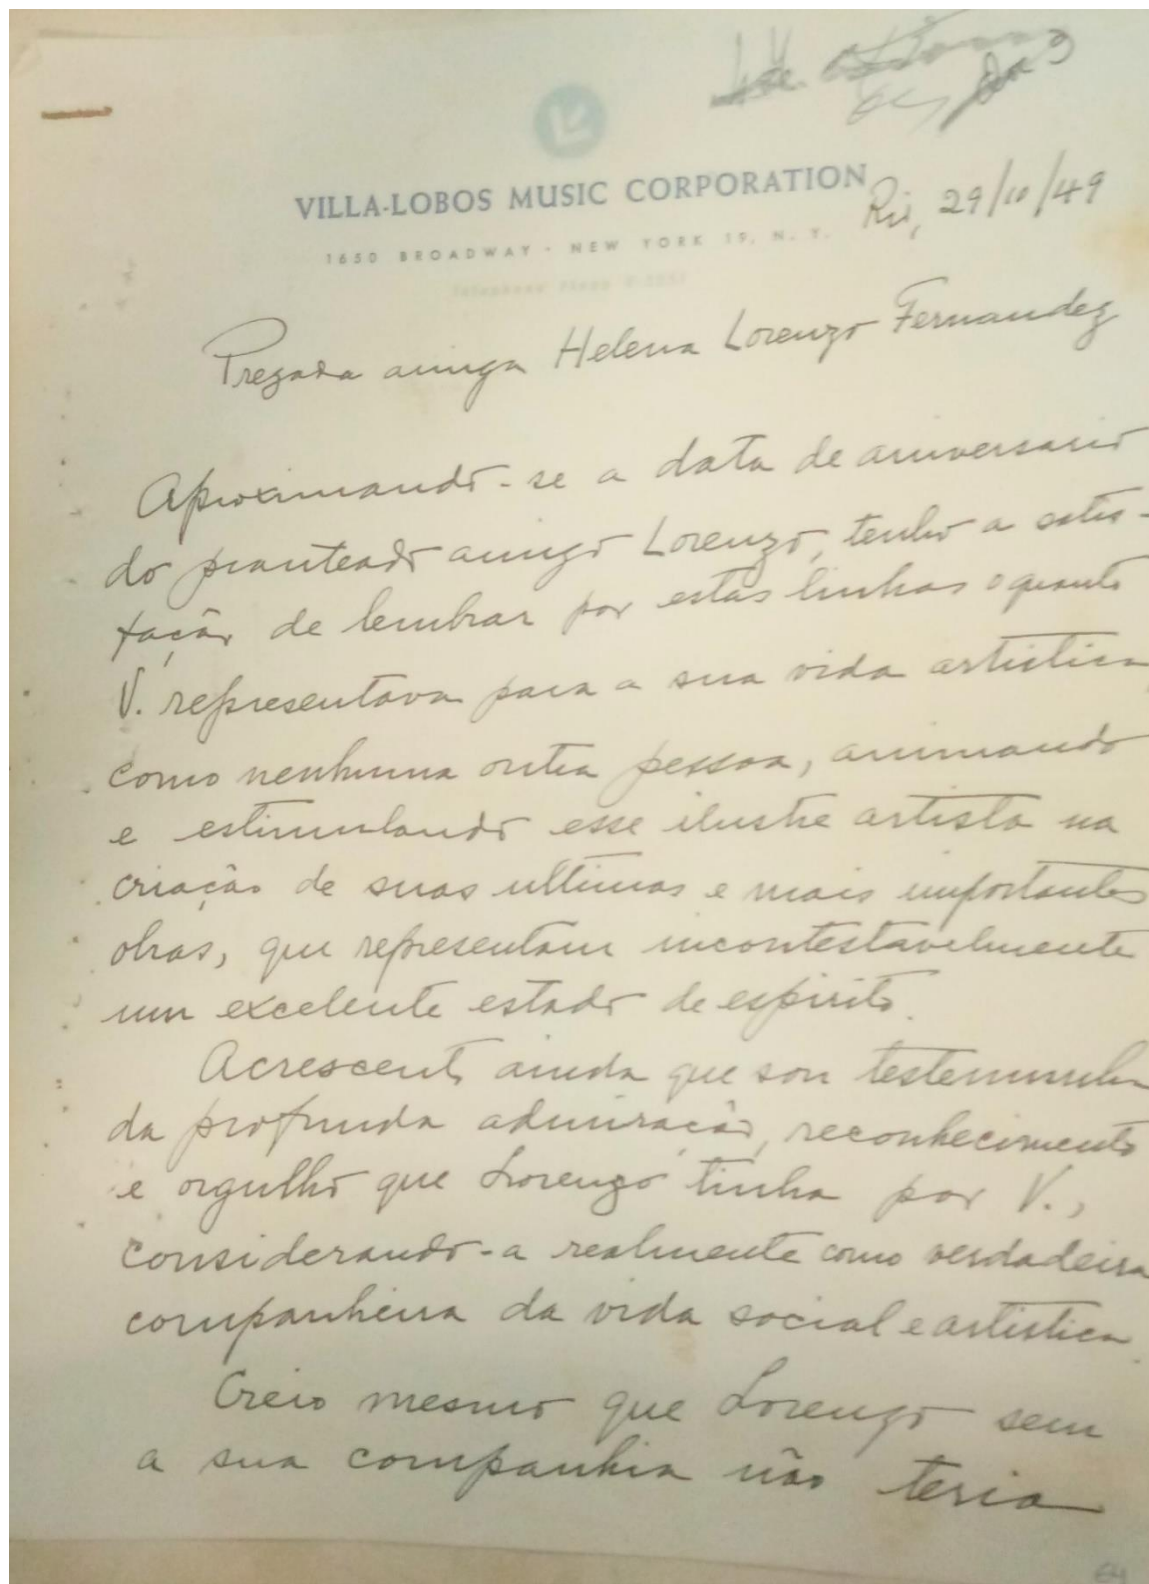 VILLA-LOBOS MUSIC CORPORATION
1650 BROADWAY · NEW YORK 19, N. Y.
Rio, 29/10/49
Prezada amiga Helena Lorenzo Fernandez
Aproximando-se a data de aniversario
do pranteado amigo Lorenzo, tenho a satis-
fação de lembrar por estas linhas o quanto
V. representava para a sua vida artistica
como nenhuma outra pessoa, animando
e estimulando esse ilustre artista na
criação de suas ultimas e mais importantes
obras, que representam incontestavelmente
um excelente estado de espirito.
Acrescento ainda que sou testemunha
da profunda admiração, reconhecimento
e orgulho que Lorenzo tinha por V.,
considerando-a realmente como verdadeira
companheira da vida social e artistica.
Creio mesmo que Lorenzo sem
a sua companhia não teria